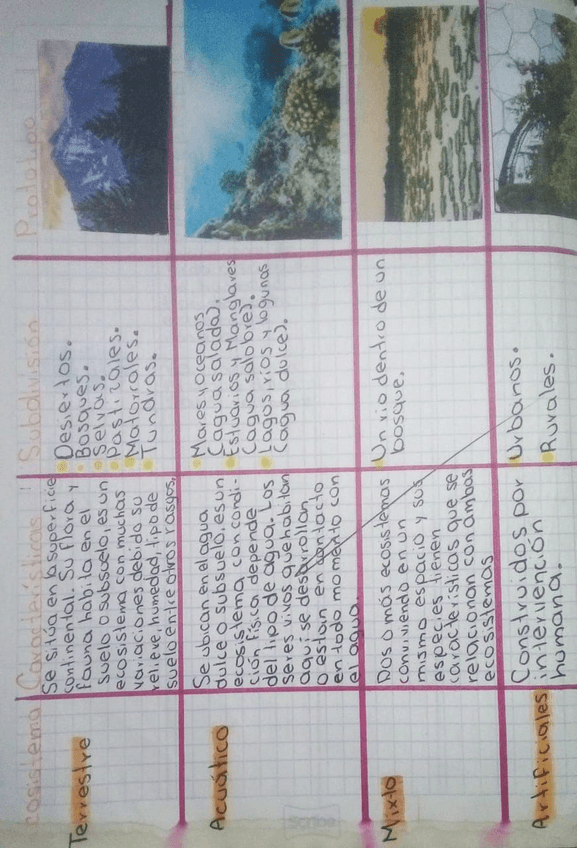 Ecosistema Características Subdivisión Prototipo
Terrestre
Se situa en la superficie
continental. Su flora y
fauna habita en el
suelo o subsuelo, es un
ecosistema con muchas
variaciones debido su
relieve, humedad, tipo de
suelo entre otros rasgos.
Desiertos.
Bosques.
Selvas.
Pastizales.
Matorrales.
Tundras.
Acuático
Se ubican en el agua
dulce o subsuelo, es un
ecosistema con condi-
ción física depende
del tipo de agua. Los
seres vivos que habitan
aqui se desarrollan
o estain en contacto
en todo momento con
el agua.
Mares y oceanos
(agua salada).
Estuarios y Manglares
(agua salobre).
Lagos, rios y lagunas
(agua dulce).
Mixto
Dos o más ecosistemas
conviviendo en un
mismo espacio y sus
especies tienen
características que se
relacionan con ambas
ecosistemas
Un rio dentro de un
bosque.
Artificiales
Construidos por
intervención
humana.
Urbanos.
Rurales.
Scribe